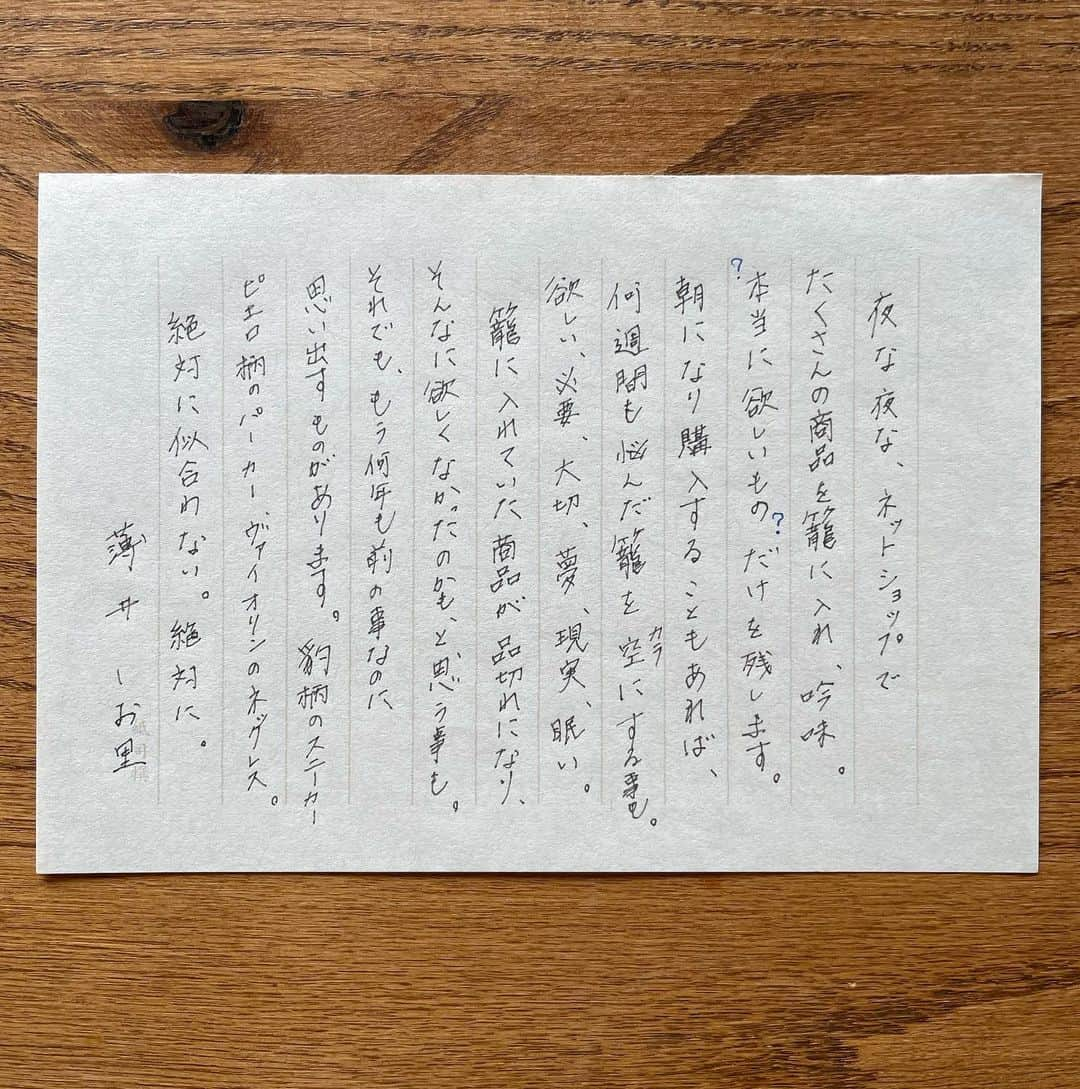 夜な夜な、ネットショップで
たくさんの商品を籠に入れ、吟味。
?本当に欲しいもの?だけを残します。
朝になり購入することもあれば、
何週間も悩んだ籠を空にする事も。
カラ
欲しい、必要、大切、夢、現実、眠い。
籠に入れていた商品が品切れになり、
そんなに欲しくなかったのかも、と思う事も。
それでも、もう何年も前の事なのに
思い出すものがあります。豹柄のスニーカー
ピエロ柄のパーカー、ヴァイオリンのネックレス。
絶対に似合わない。絶対に。
薄井しお里